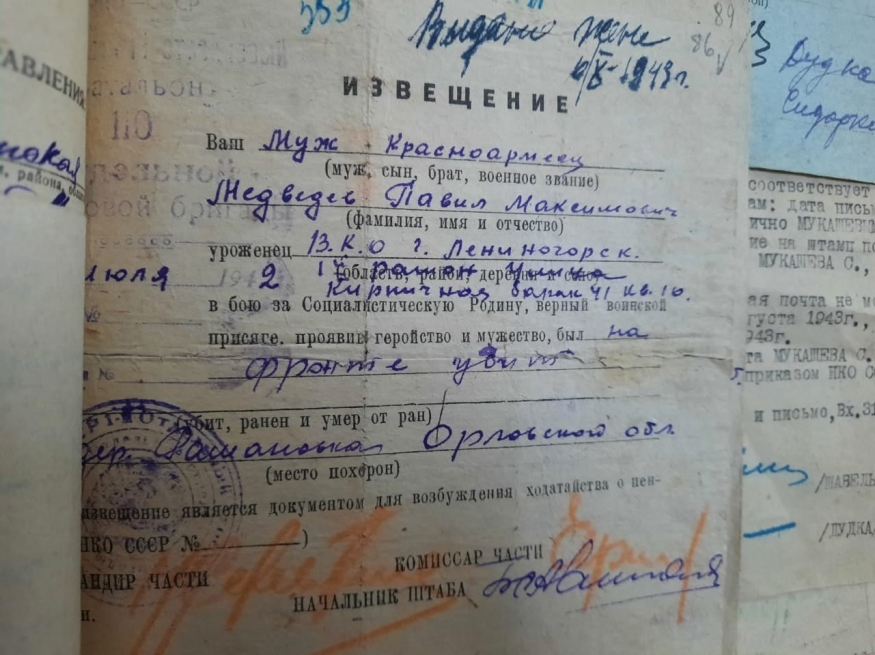 АВЛЕНИ
353
Выдано жене
6/X-1943г.
89
86
ИЗВЕЩЕНИЕ
110
овой бригады
Ваш Муж Красноармеец
(муж, сын, брат, военное звание)
Медведев Павил Максимович
(фамилия, имя и отчество)
уроженец ВКО г. Лениногорск.
июля 194 2 17 район улица
(область, район, деревня
Кирпичная барак 41 кв. 10.
в бою за Социалистическую Родину, верный воинской
присяге, проявив геройство и мужество, был на
фронте убит
(убит, ранен и умер от ран)
дер. Орловского обл
(место похорон)
извещение является документом для возбуждения ходатайства о пен-
НКО СССР № )
АНДИР ЧАСТИ
КОМИССАР ЧАСТИ
НАЧАЛЬНИК ШТАБА
Дудка
соответствует
ам: дата письм
ично МУКАШЕВЫМ
ие на штамп по
МУКАШЕВА С.,
ая почта не мо
густа 1943г.,
943г.
та МУКАШЕВА С.
приказом НКО СС
и письмо, Вх.31
/ШАВЕЛЬ
/ДУДКА/